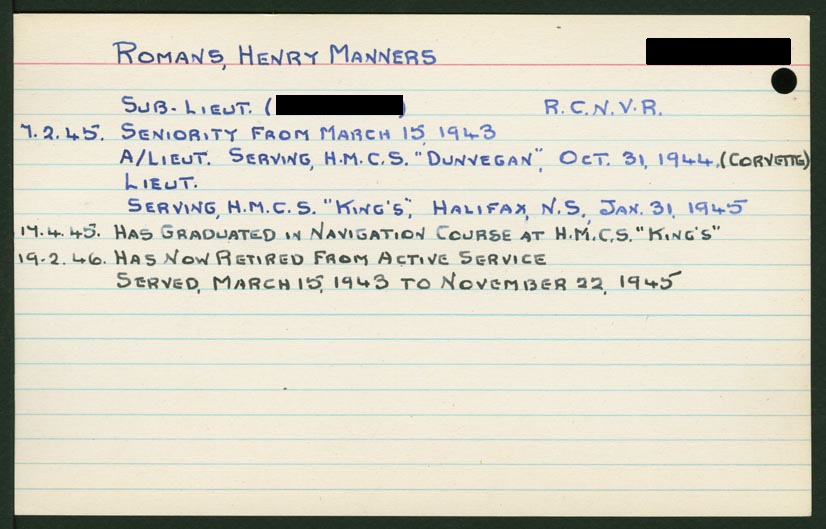 ROMANS, HENRY MANNERS
SUB-LIEUT. ( ) R.C.N.V.R.
7.2.45. SENIORITY FROM MARCH 15, 1943
A/LIEUT. SERVING, H.M.C.S. "DUNVEGAN", OCT. 31, 1944, (CORVETTE)
LIEUT.
SERVING, H.M.C.S. "KING'S", HALIFAX, N.S., JAN. 31, 1945
17.4.45. HAS GRADUATED IN NAVIGATION COURSE AT H.M.C.S. "KING'S"
19-2.46. HAS NOW RETIRED FROM ACTIVE SERVICE
SERVED, MARCH 15, 1943 TO NOVEMBER 22, 1945